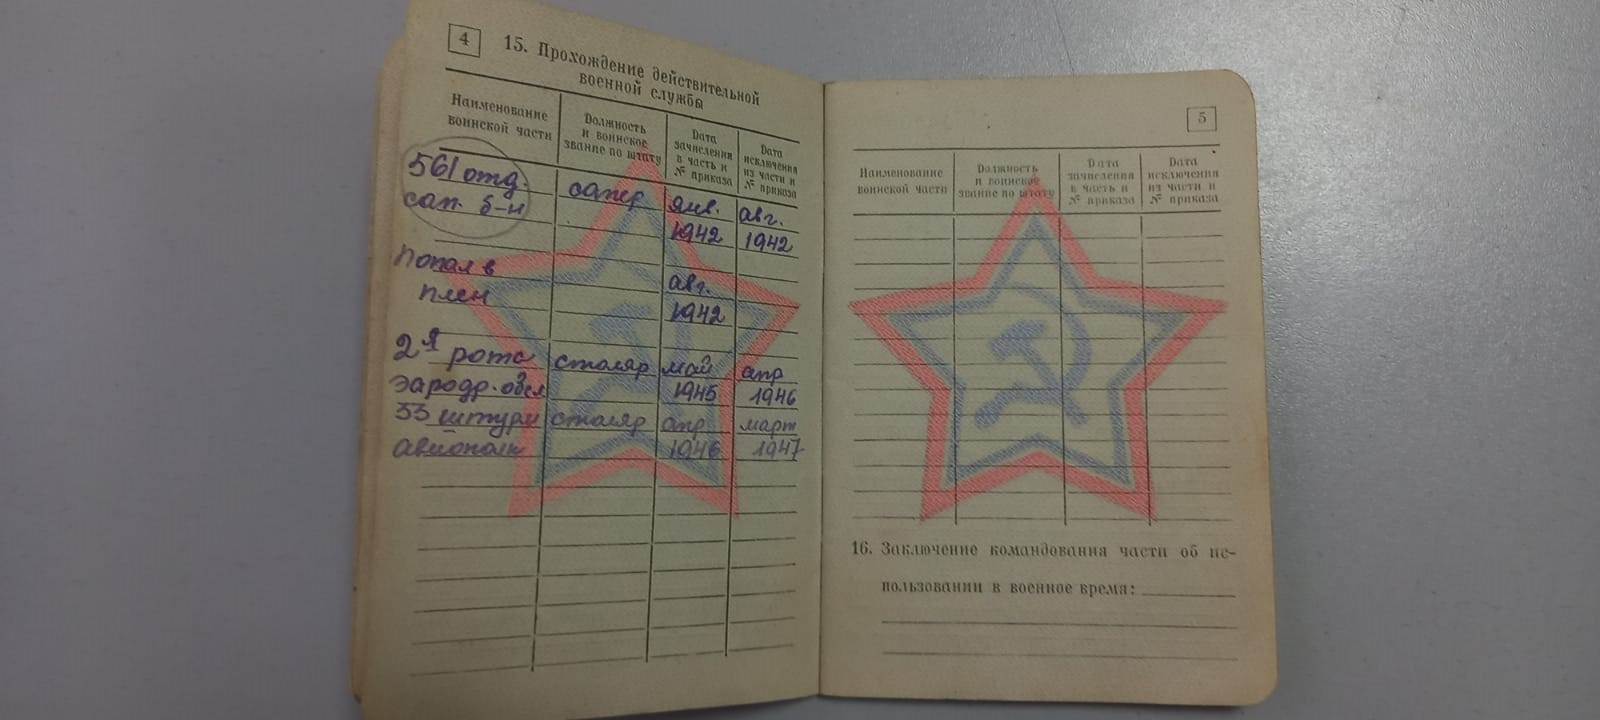 4
15. Прохождение действительной
военной службы
Наименование
воинской части
Должность
и воинское
звание по штату
Дата
зачисления
в часть и
№ приказа
Дата
исключения
из части и
№ приказа
561 отд. сапер янв. авг.
сап. б-н 1942 1942
Попал в авг.
плен 1942
2я рота столяр май апр
аэродр. обсл 1945 1946
53 штурм столяр апр март
авиополк 1946 1947
5
Наименование
воинской части
Должность
и воинское
звание по штату
Дата
зачисления
в часть и
№ приказа
Дата
исключения
из части и
№ приказа
16. Заключение командования части об ис-
пользовании в военное время: